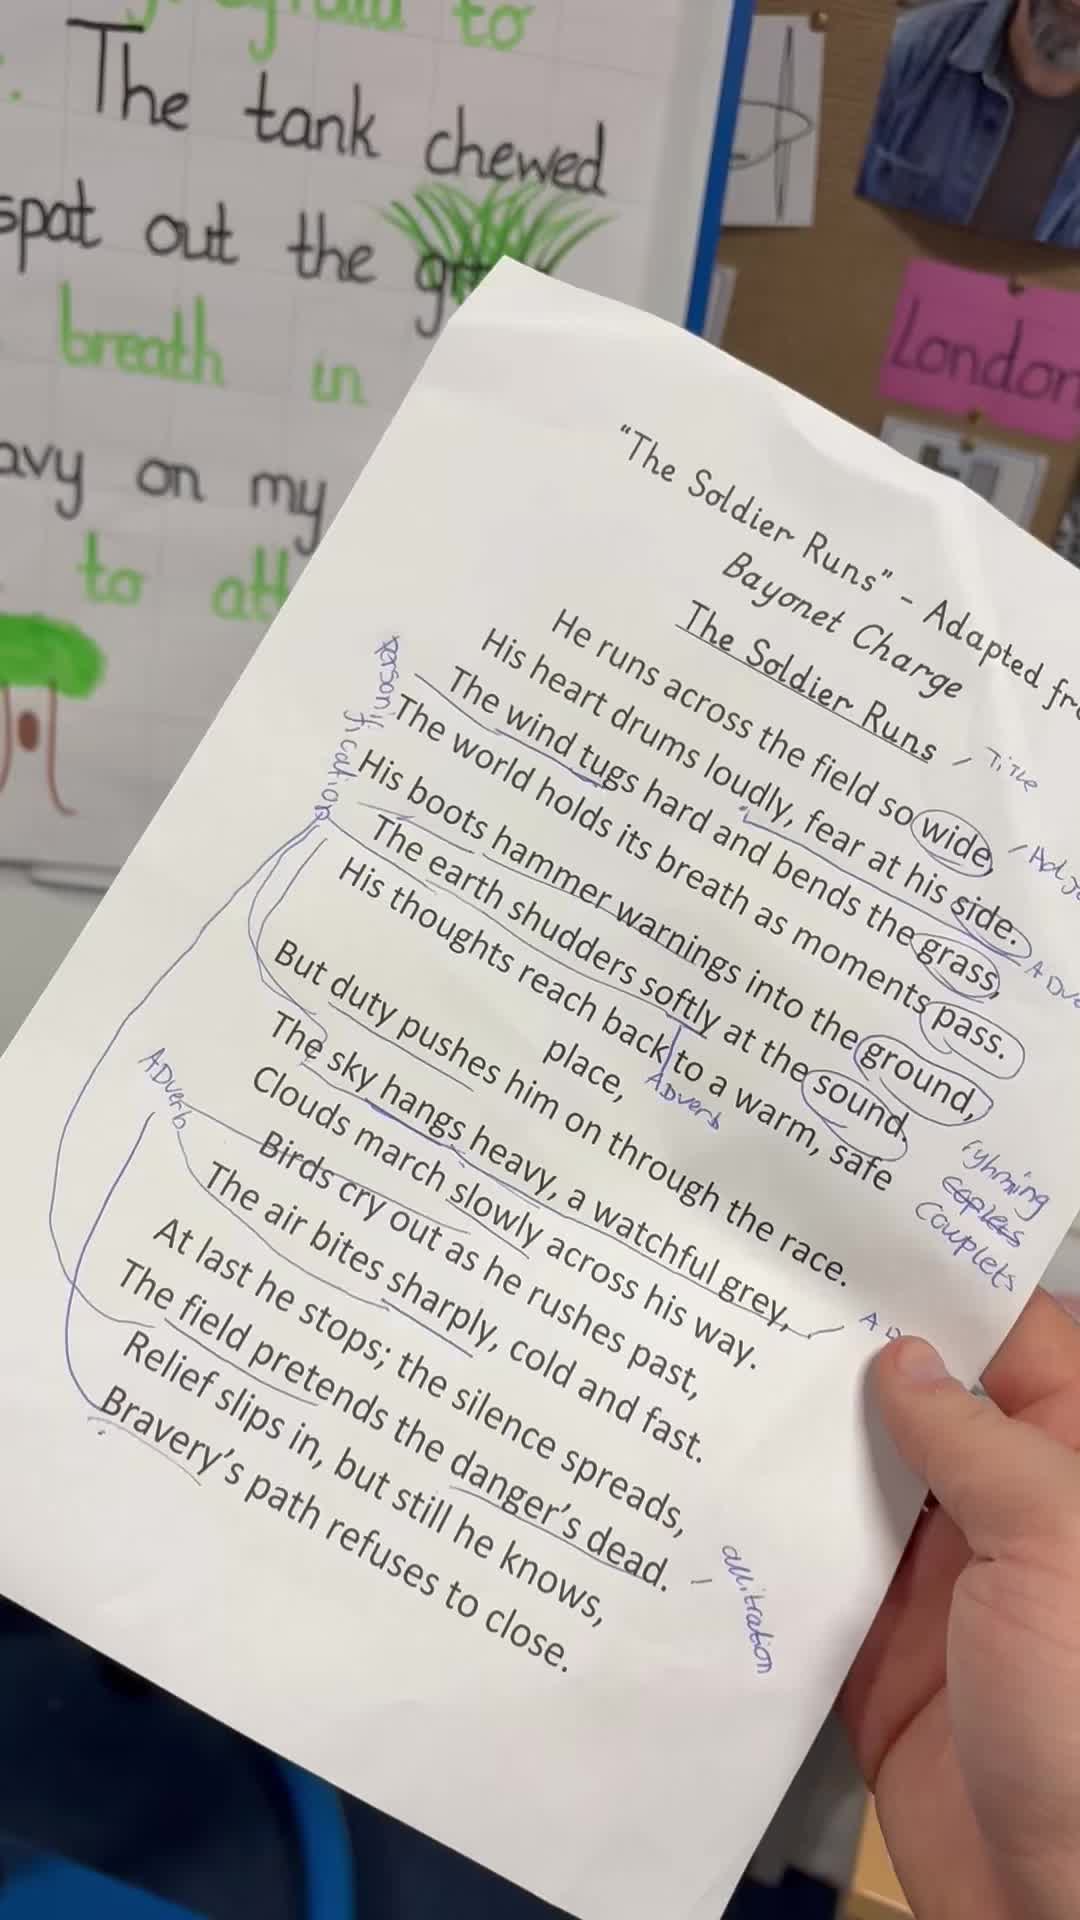 to
The tank chewed
spat out the
breath in
on my
to
London
"The Soldier Runs" - Adapted
Bayonet Charge
The Soldier Runs
Title
He runs across the field so wide,
His heart drums loudly, fear at his side.
The wind tugs hard and bends the grass,
The world holds its breath as moments pass.
His boots hammer warnings into the ground,
The earth shudders softly at the sound.
His thoughts reach back to a warm, safe
place,
But duty pushes him on through the race.
The sky hangs heavy, a watchful grey,
Clouds march slowly across his way.
Birds cry out as he rushes past,
The air bites sharply, cold and fast.
At last he stops; the silence spreads,
The field pretends the danger's dead.
Relief slips in, but still he knows,
Bravery's path refuses to close.
personification
Adverb
Adverb
ryhming
Couplets
allitration